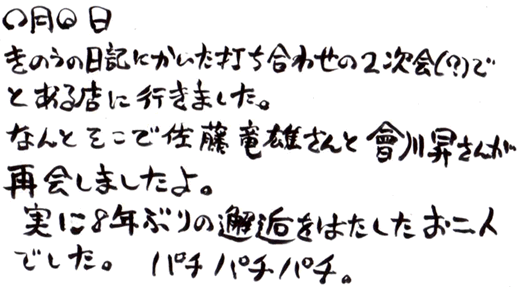 〇月〇日
きのうの日記にかいた打ち合わせの2次会(?)で
とある店に行きました。
なんとそこで佐藤竜雄さんと會川昇さんが
再会しましたよ。
実に8年ぶりの邂逅をはたしたお二人
でした。 パチパチパチ。